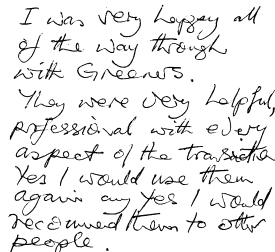 I was very happy all
of the way through
with Greeners.
They were very helpful,
professional with every
aspect of the transaction
Yes I would use them
again any Yes I would
recommed them to other
people.